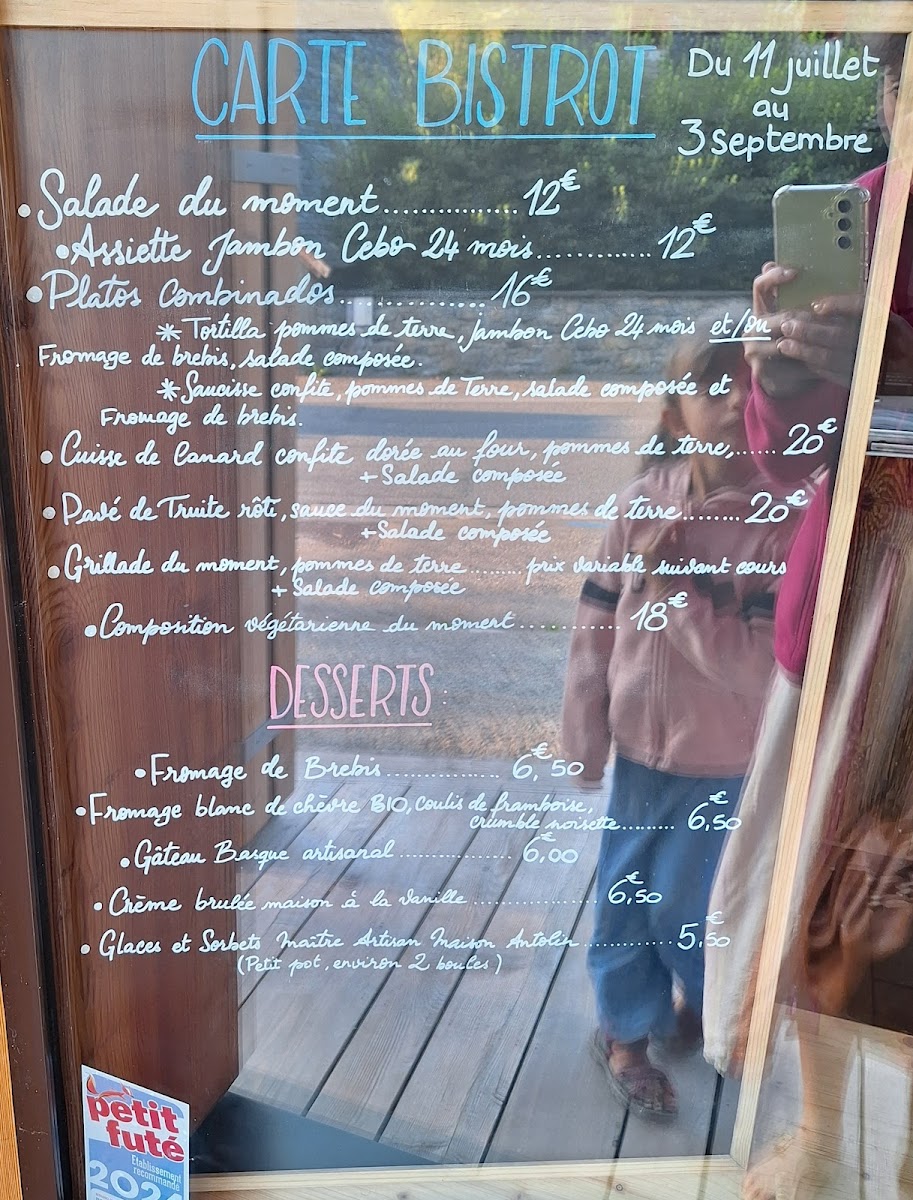 CARTE BISTROT
Du 11 juillet
au
3 Septembre
• Salade du moment............... 12€
• Assiette Jambon Cebo 24 mois............ 12€
• Platos Combinados............... 16€
* Tortilla pommes de terre, jambon Cebo 24 mois et/ou
Fromage de brebis, salade composée.
* Saucisse confite, pommes de Terre, salade composée et
Fromage de brebis.
• Cuisse de Canard confite dorée au four, pommes de terre,...... 20€
+ Salade composée
• Pavé de Truite rôti, sauce du moment, pommes de terre........ 20€
+ Salade composée
• Grillade du moment, pommes de terre........ prix variable suivant cours
+ Salade composée
• Composition végétarienne du moment............ 18€
DESSERTS
• Fromage de Brebis............... 6,€50
• Fromage blanc de chèvre BIO, coulis de framboise,
crumble noisette......... 6,€50
• Gâteau Basque artisanal............... 6,€00
• Crème brulée maison à la vanille.................. 6,€50
• Glaces et Sorbets Maître Artisan Maison Antolin............ 5,€50
(Petit pot, environ 2 boules)
petit
futé
Etablissement
recommandé